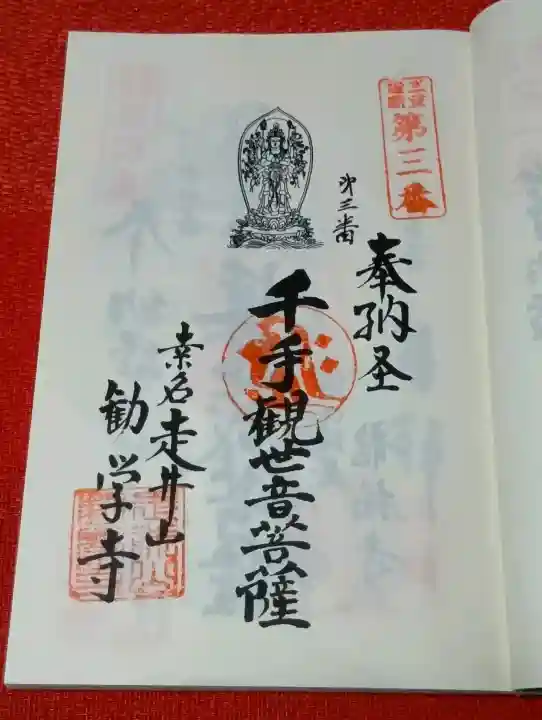 第三番
奉納圣
第三番
千手觀世音菩薩
桑名走井山
勧学寺